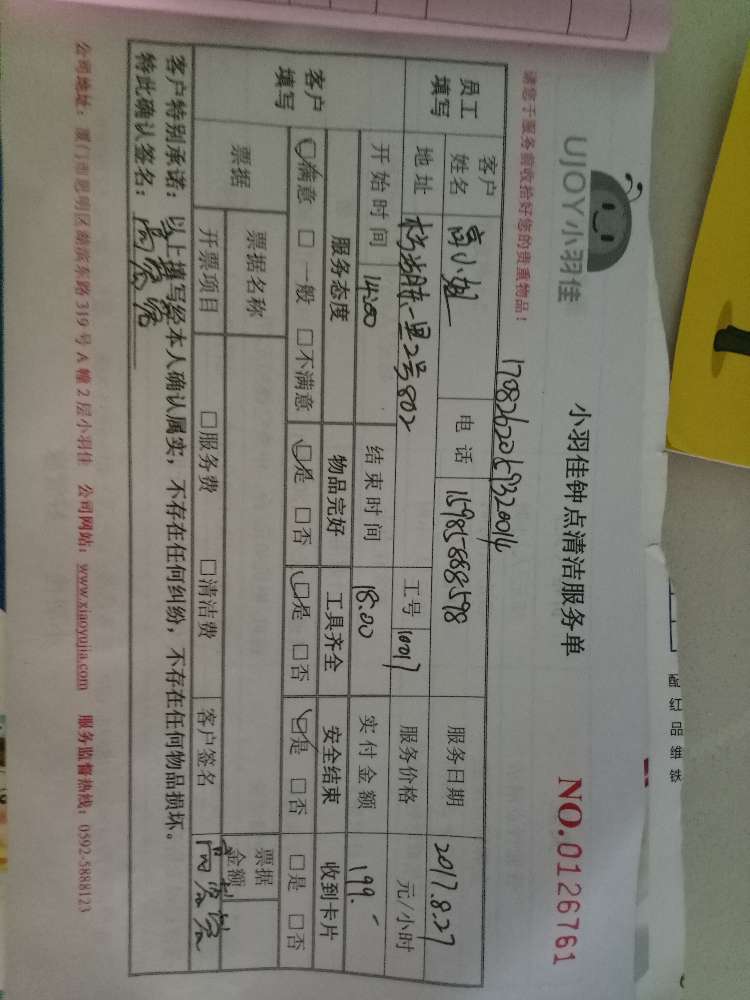 UJOY小羽佳
小羽佳钟点清洁服务单
NO.0126761
请您于服务前收拾好您的贵重物品!
17082620159320014
员工填写
客户姓名 高小姐 电话 15985888598 服务日期 2017.8.27
地址 2号802 工号 10017 服务价格 元/小时
开始时间 14:00 结束时间 18:00 实付金额 199.-
客户填写
服务态度 物品完好 工具齐全 安全结束 收到卡片
☑满意 □一般 □不满意 ☑是 □否 ☑是 □否 ☑是 □否 □是 □否
票据 票据名称 票据金额
开票项目 □服务费 □清洁费 客户签名
客户特别承诺:以上填写经本人确认属实,不存在任何纠纷,不存在任何物品损坏。
特此确认签名:
公司地址:厦门市思明区湖滨东路319号A幢2层小羽佳 公司网站:www.xiaoyujia.com 服务监督热线:0592-5888123
配红品维铁